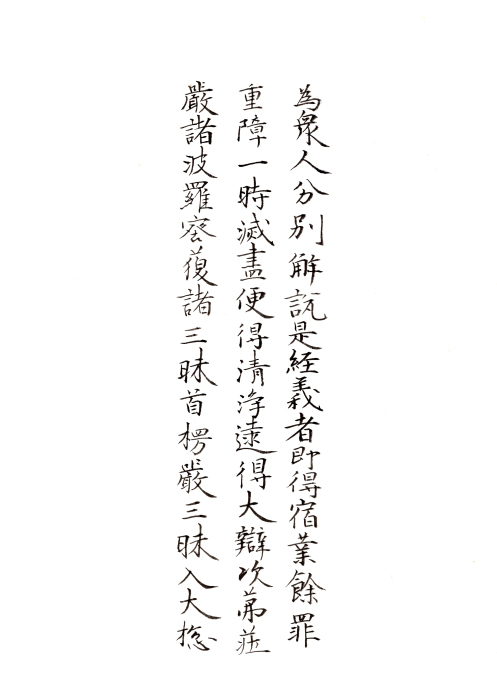 為衆人分別解説是経義者即得宿業餘罪
重障一時滅盡便得清浄逮得大辯次第荘
嚴諸波羅蜜獲諸三昧首楞嚴三昧入大捴